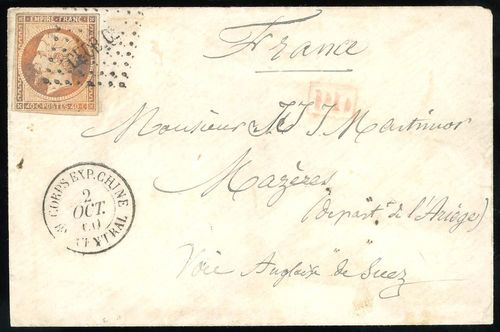 EMPIRE FRANC
40·C·POSTES·40·C
France
PD
Monsieur J J J Martimor
Mazères
(Depart. de l'Ariège)
Voie Anglaise de Suez
CORPS EXP. CHINE
2
OCT.
60
CENTRAL